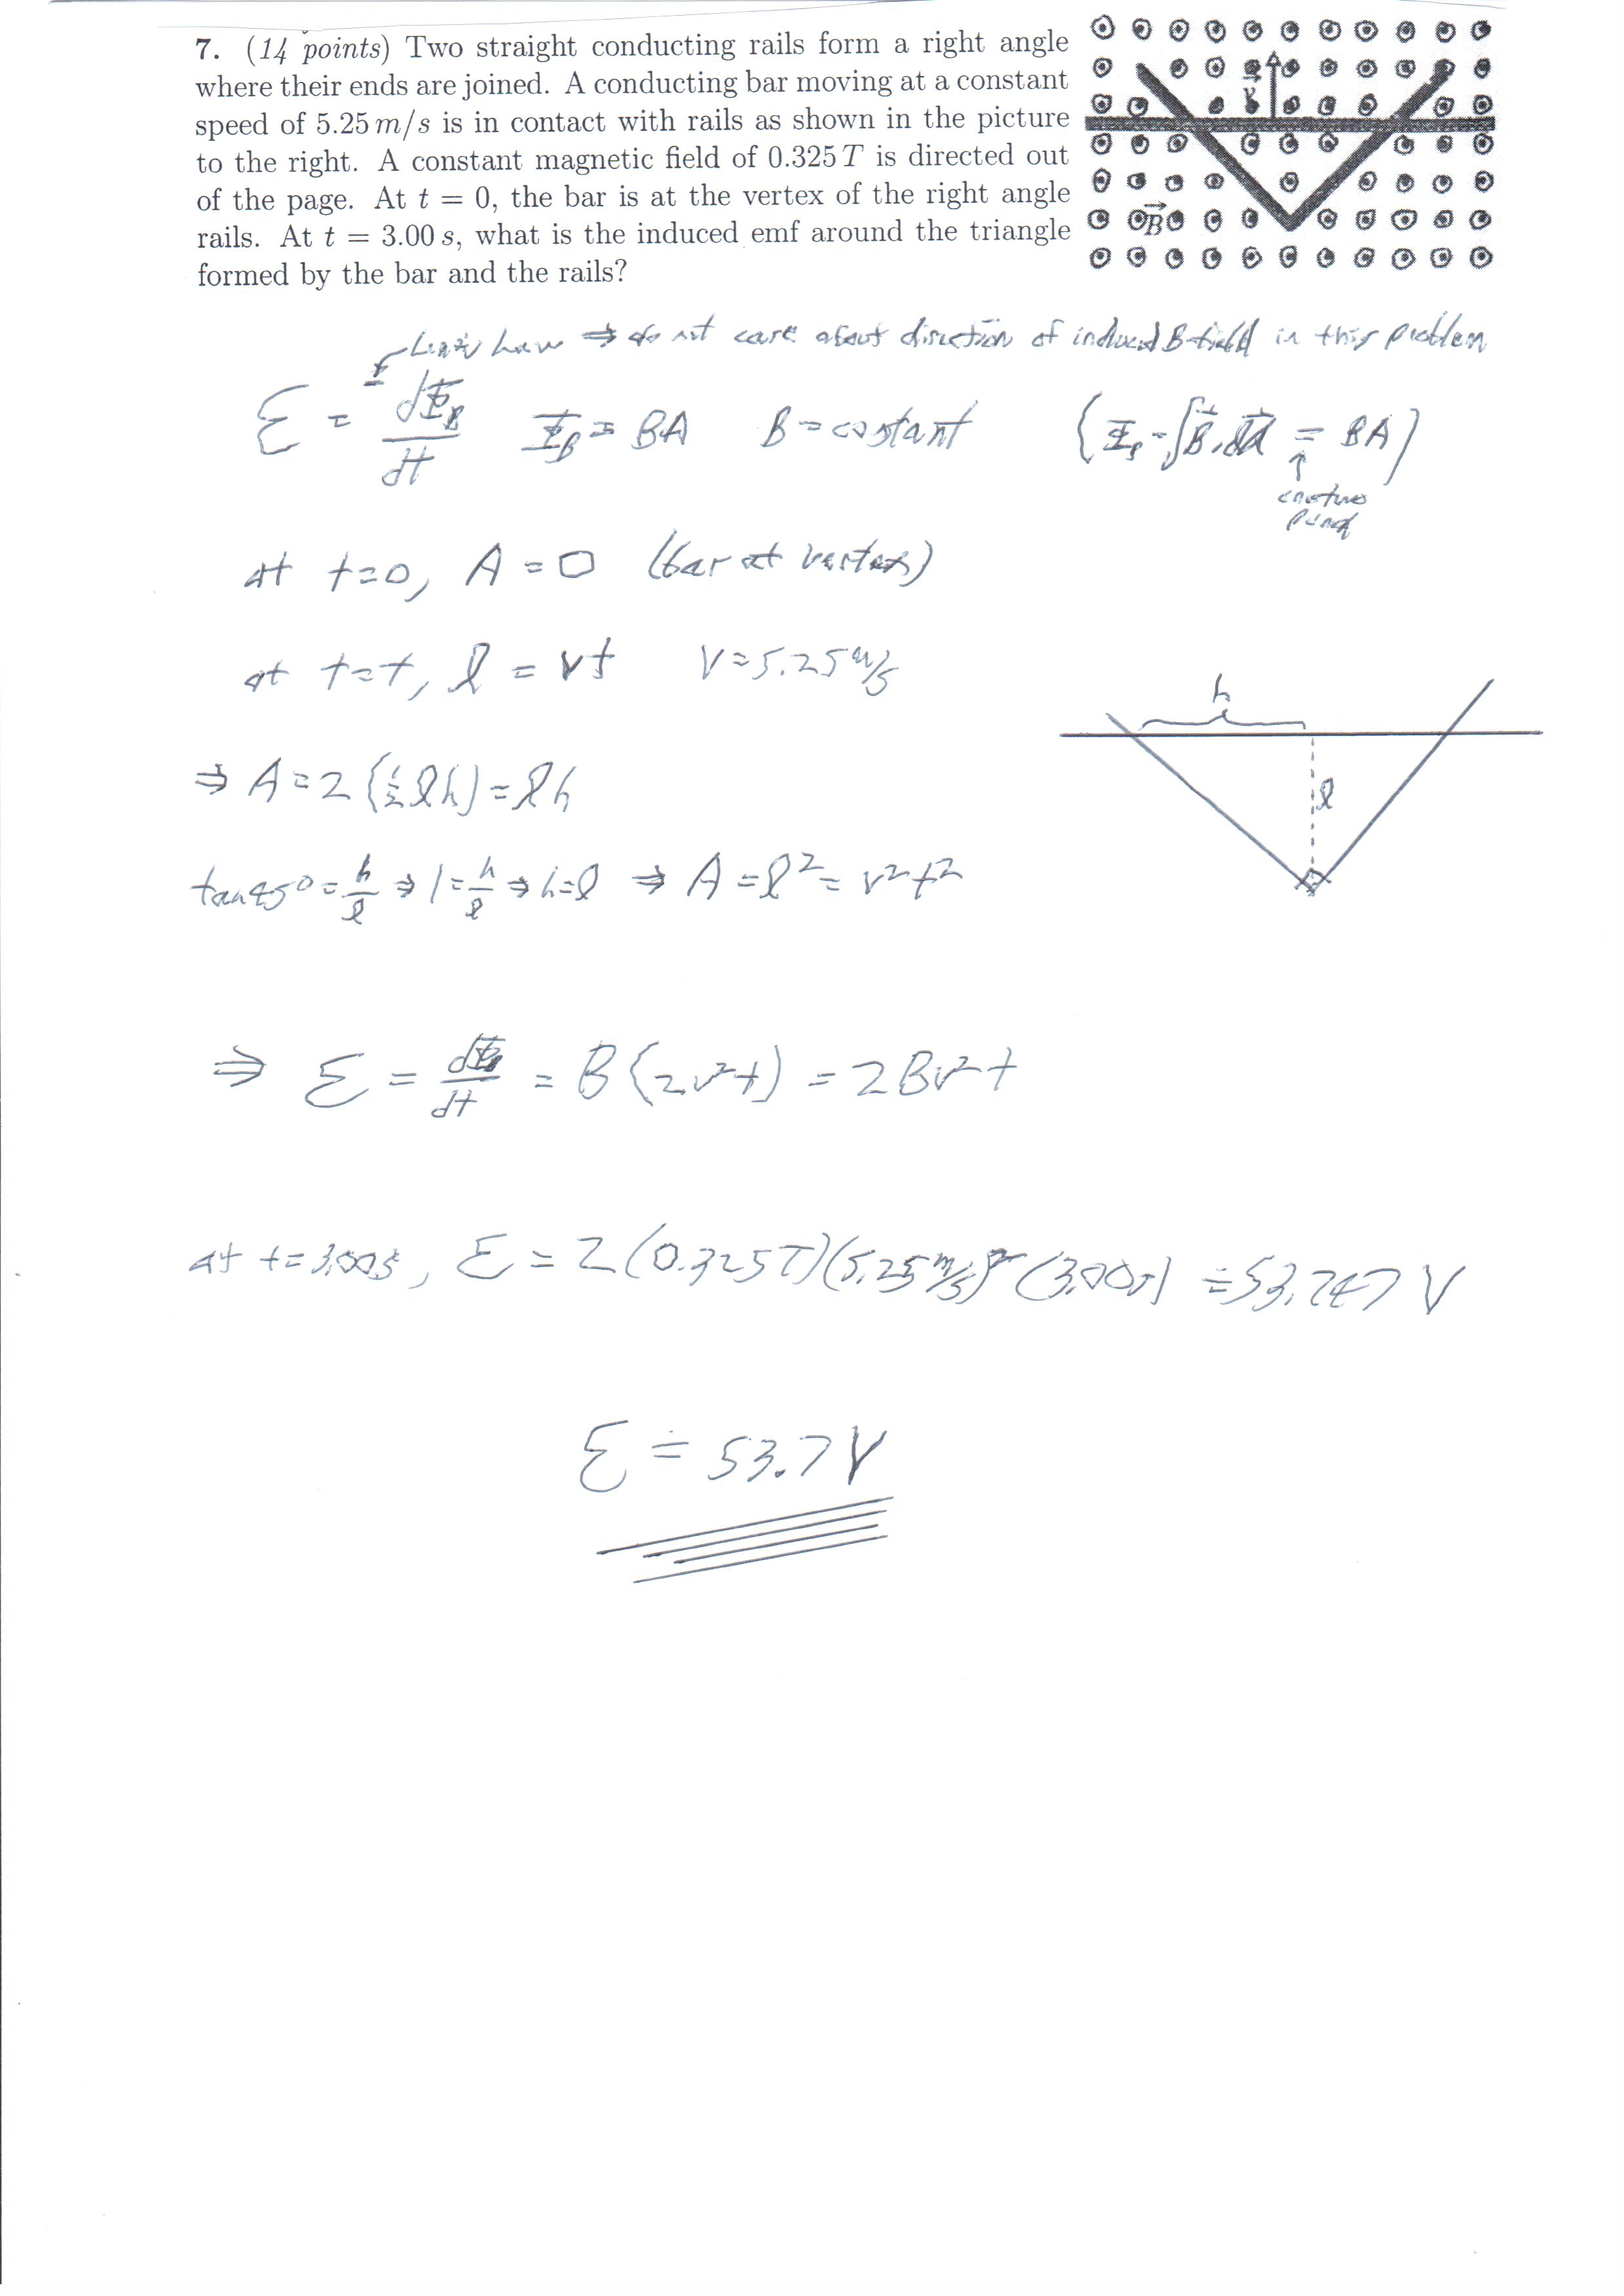 7. (14 points) Two straight conducting rails form a right angle
where their ends are joined. A conducting bar moving at a constant
speed of 5.25 m/s is in contact with rails as shown in the picture
to the right. A constant magnetic field of 0.325 T is directed out
of the page. At t = 0, the bar is at the vertex of the right angle
rails. At t = 3.00 s, what is the induced emf around the triangle
formed by the bar and the rails?
v⃗
B⃗
Lenz's Law ⇒ do not care about direction of induced B-field in this problem
ℰ = ∓ dΦ_B/dt   Φ_B = BA   B = costant   (Φ_B = ∫B⃗·dA⃗ = BA)
↑
at t=0, A = 0 (bar at vertex)
at t=t, l = vt   v=5.25 m/s
h
l
⇒ A = 2(½lh) = lh
tan45° = h/l ⇒ 1 = h/l ⇒ h=l ⇒ A = l² = v²t²
⇒ ℰ = dΦ_B/dt = B(2v²t) = 2Bv²t
at t=3.00s, ℰ = 2(0.325T)(5.25 m/s)²(3.00s) ≐ 53.747 V
ℰ ≐ 53.7 V